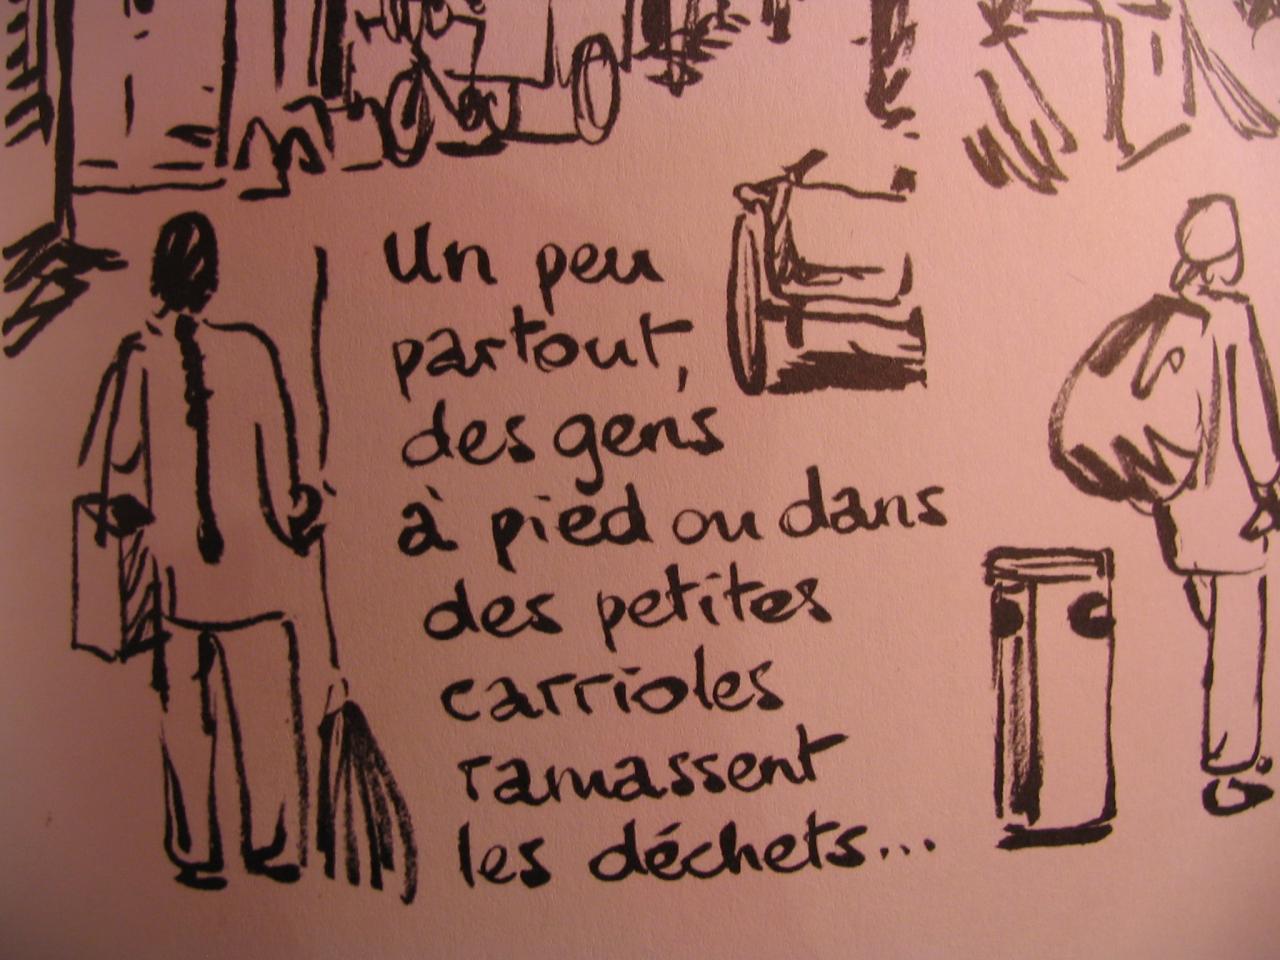 Un peu
partout,
des gens
à pied ou dans
des petites
carrioles
ramassent
les déchets...